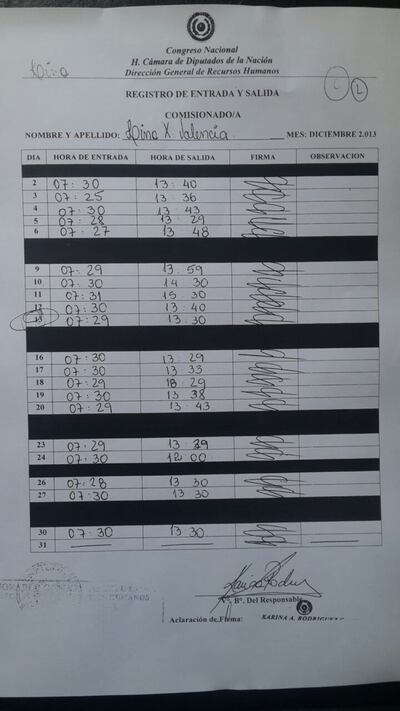 Congreso Nacional
H. Cámara de Diputados de la Nación
Dirección General de Recursos Humanos
REGISTRO DE ENTRADA Y SALIDA
L
COMISIONADO/A
NOMBRE Y APELLIDO: X. Valencia MES: DICIEMBRE 2.013
DIA HORA DE ENTRADA HORA DE SALIDA FIRMA OBSERVACION
2 07:30 13:40
3 07:25 13:36
4 07:30 13:43
5 07:28 13:29
6 07:27 13 48
9 07:29 13:59
10 07:30 14:30
11 07:31 15:30
12 07:30 13:40
13 07:29 13:30
16 07:30 13:29
17 07:30 13 33
18 07:29 18:29
19 07:30 13 38
20 07:29 13:43
23 07:29 13
24 07:30 12 00
26 07:28 13 30
27 07:30 13 30
30 07:30 13:30
31
Vº. Bº. Del Responsable
Aclaración de Firma: KARINA A.